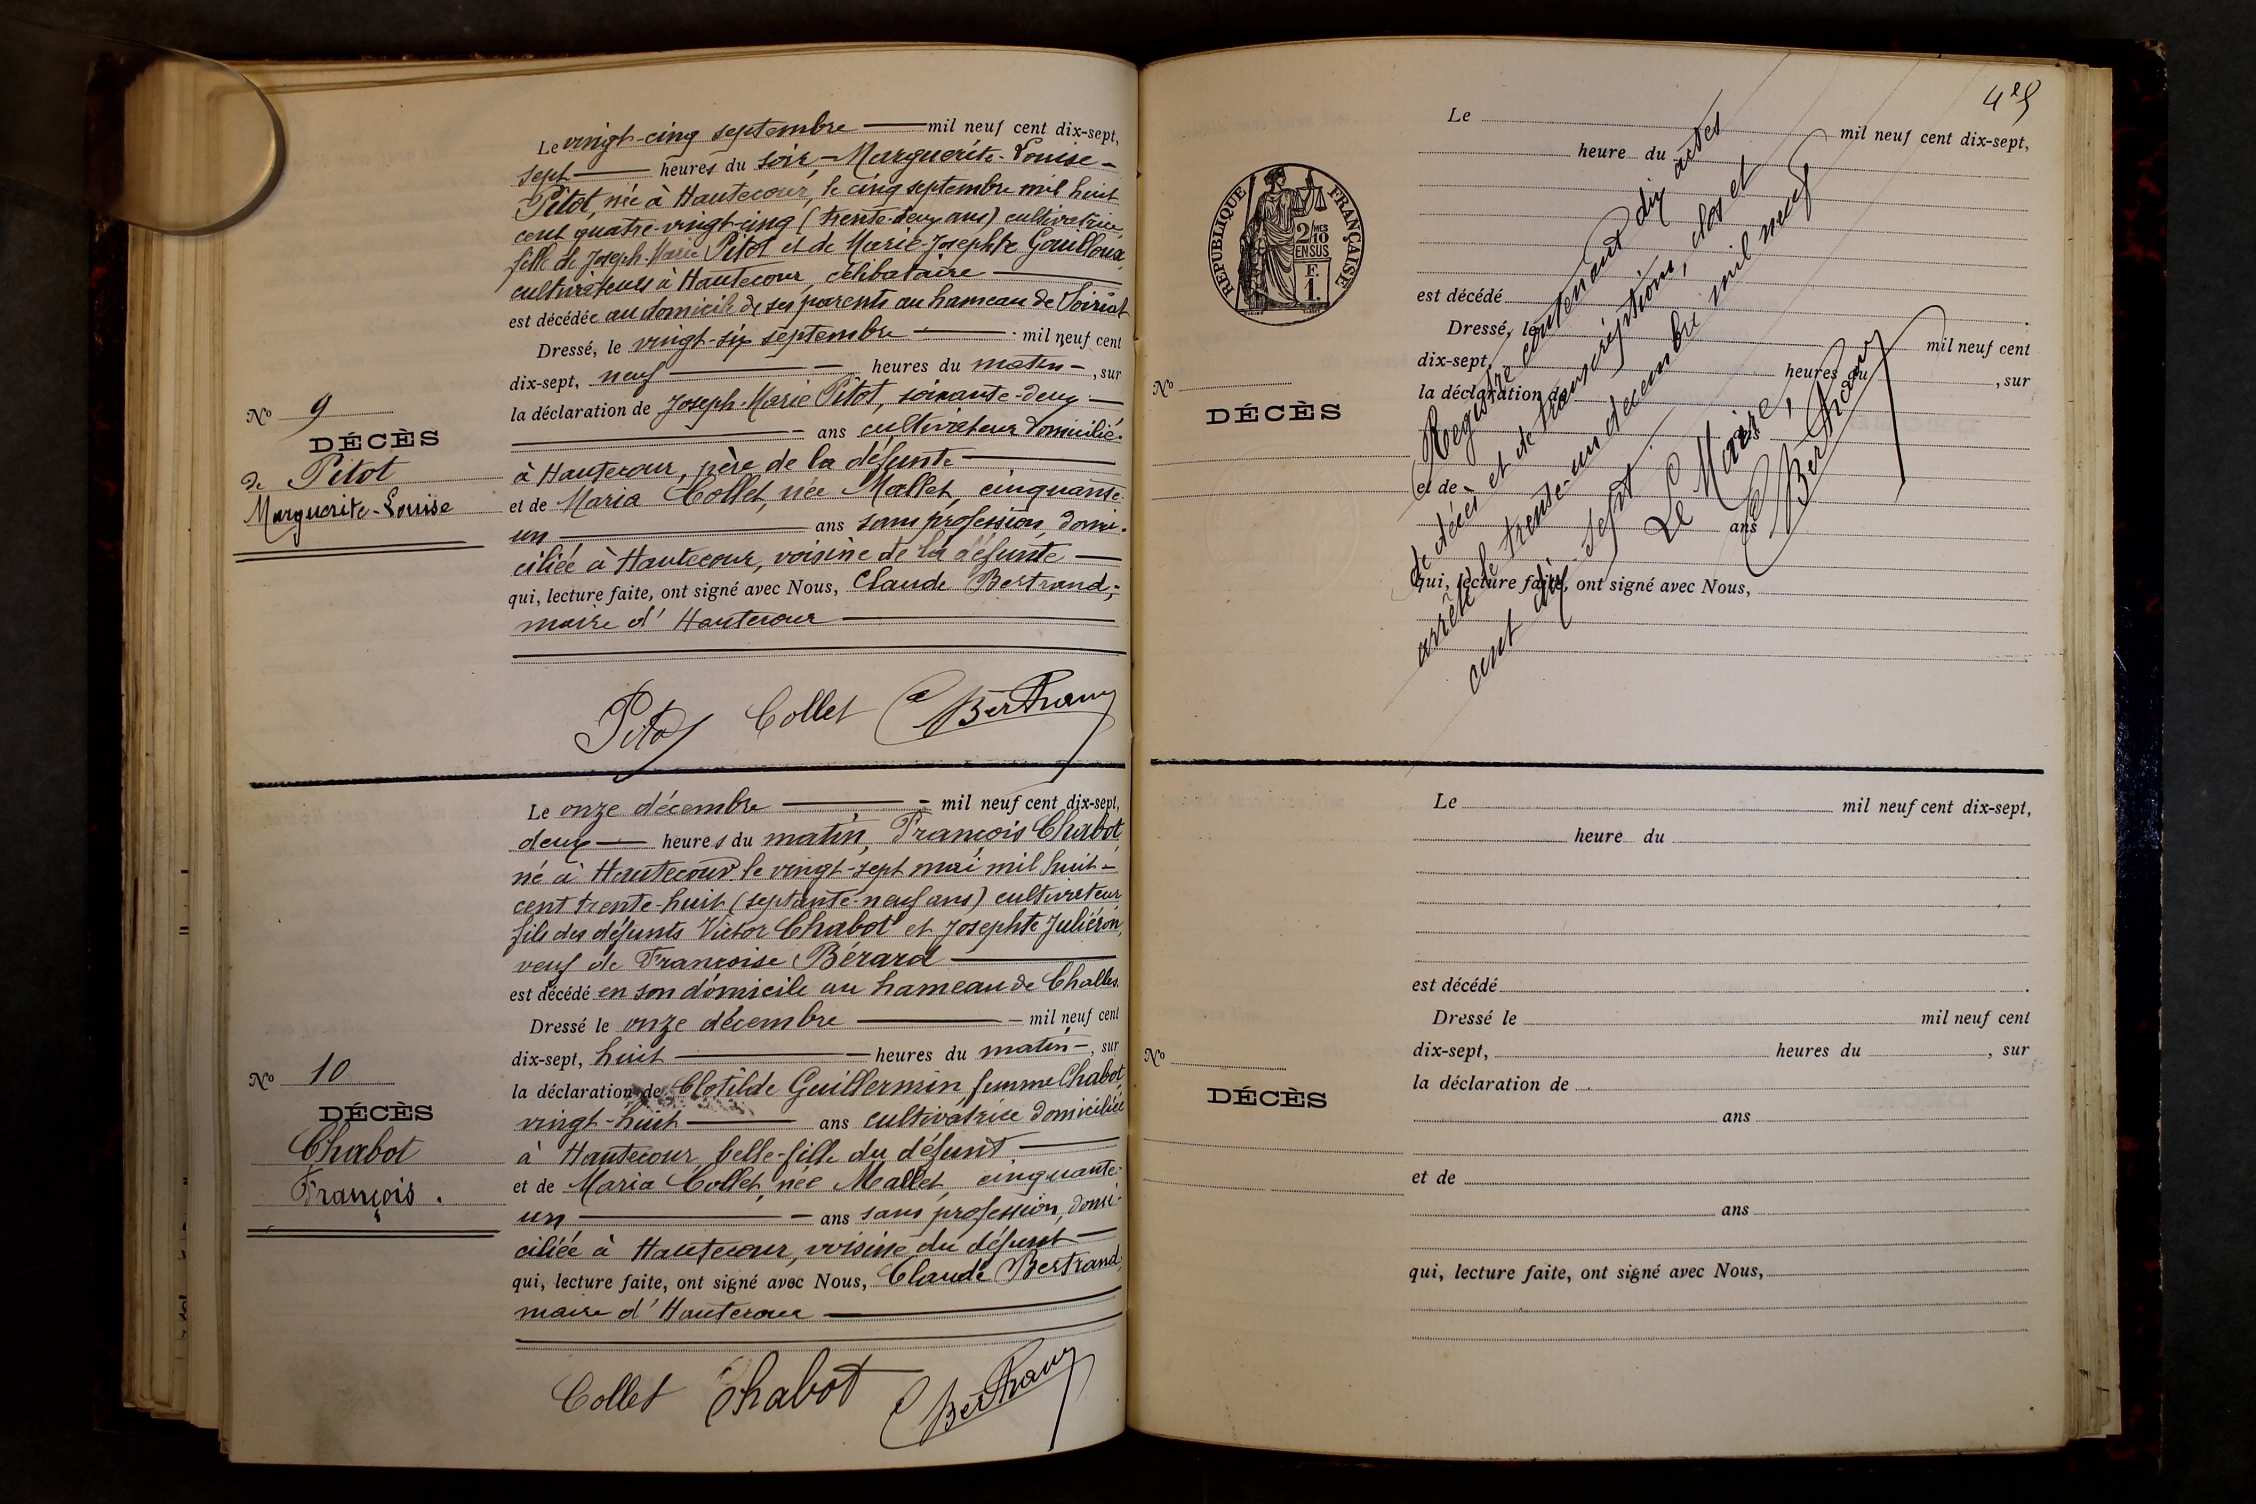 Le vingt-cinq septembre — mil neuf cent dix-sept,
sept — heures du soir, - Marguerite-Louise -
Pitot, née à Hautecour, le cinq septembre mil huit
cent quatre-vingt-cinq (trente-deux ans) cultivatrice,
fille de Joseph-Marie Pitot et de Marie-Josephte Gouilloux,
cultivateurs à Hautecour, célibataire —
est décédée au domicile de ses parents au hameau de Soiriat
Dressé, le vingt-six septembre — mil neuf cent
dix-sept, neuf — heures du matin -, sur
la déclaration de Joseph-Marie Pitot, soixante-deux —
— ans cultivateur domicilié
à Hautecour, père de la défunte —
et de Maria Collet, née Mallet, cinquante-
un — ans sans profession, domi-
ciliée à Hautecour, voisine de la défunte —
qui, lecture faite, ont signé avec Nous, Claude Bertrand,
maire d'Hautecour —
Nº 9
DÉCÈS
de Pitot
Marguerite-Louise
Pitot Collet C Bertrand
Le onze décembre — mil neuf cent dix-sept,
deux — heures du matin, François Chabot
né à Hautecour le vingt-sept mai mil huit-
cent trente-huit (septante-neuf ans) cultivateur
fils des défunts Victor Chabot et Josephte Juliéron,
veuf de Françoise Bérard —
est décédé en son domicile au hameau de Challes
Dressé le onze décembre — mil neuf cent
dix-sept, huit — heures du matin -, sur
la déclaration de Clotilde Guillermin femme Chabot,
vingt-huit — ans cultivatrice domiciliée
à Hautecour belle-fille du défunt —
et de Maria Collet, née Mallet cinquante-
un — ans sans profession, domi-
ciliée à Hautecour, voisine du défunt —
qui, lecture faite, ont signé avec Nous, Claude Bertrand,
maire d'Hautecour —
Nº 10
DÉCÈS
Chabot
François.
Collet Chabot C Bertrand
RÉPUBLIQUE FRANÇAISE
2/10
MES
EN SUS
F.
1.
Le mil neuf cent dix-sept,
heure du
est décédé
Dressé, le mil neuf cent
dix-sept, heures du , sur
la déclaration de
ans
et de
ans
qui, lecture faite, ont signé avec Nous,
Nº
DÉCÈS
Registre contenant dix actes
de décès et de transcriptions, clos et
arrêté le trente-un décembre mil neuf
cent dix-sept
Le Maire,
C Bertrand
Le mil neuf cent dix-sept,
heure du
est décédé
Dressé le mil neuf cent
dix-sept, heures du , sur
la déclaration de
ans
et de
ans
qui, lecture faite, ont signé avec Nous,
Nº
DÉCÈS